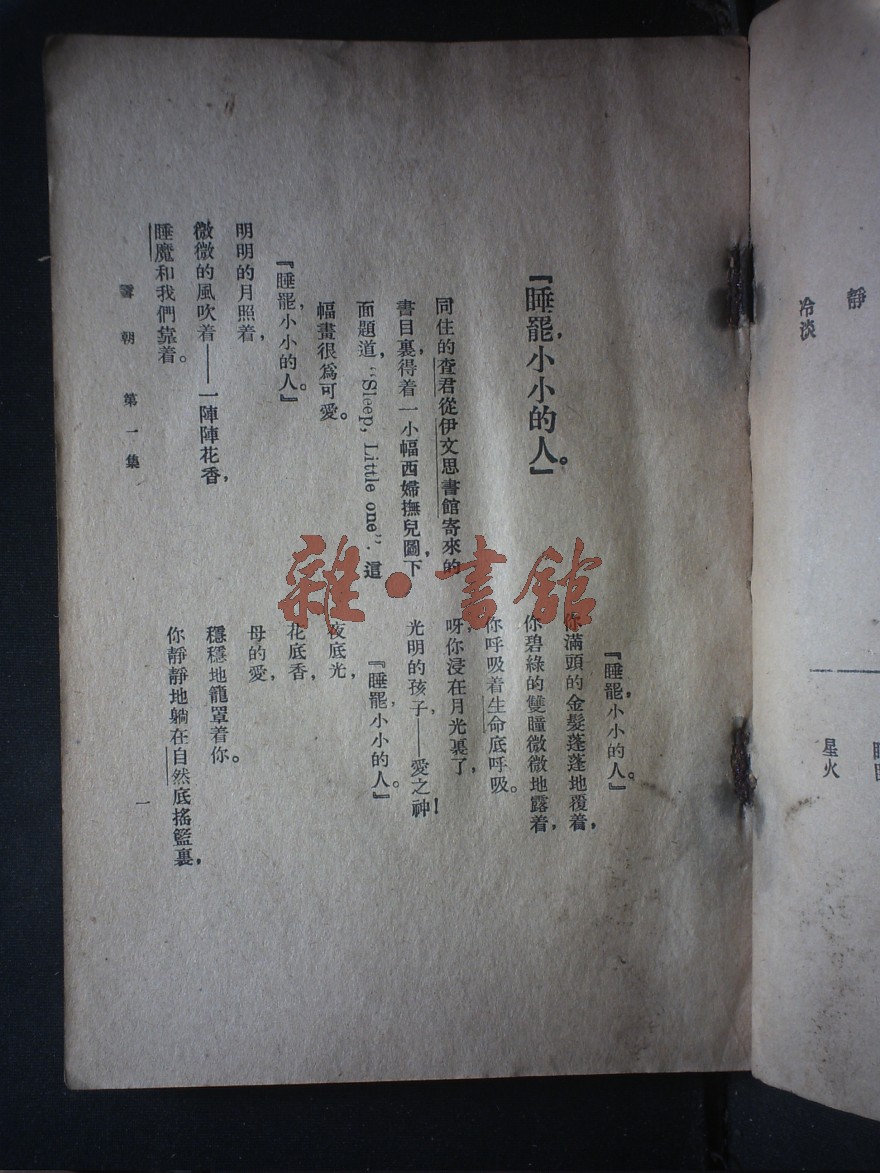 『睡罷，小小的人。』
同住的查君從伊文思書館寄來的
書目裏得着一小幅西婦撫兒圖，下
面題道，“Sleep, Little one”. 這
幅畫很爲可愛。
『睡罷，小小的人。』
明明的月照着，
微微的風吹着——一陣陣花香，
睡魔和我們靠着。
『睡罷，小小的人。』
你滿頭的金髮蓬蓬地覆着，
你碧綠的雙瞳微微地露着，
你呼吸着生命底呼吸。
呀，你浸在月光裏了，
光明的孩子——愛之神！
『睡罷，小小的人。』
夜底光，
花底香，
母的愛，
穩穩地籠罩着你。
你靜靜地躺在自然底搖籃裏，
雪朝 第一集
一
靜
冷淡
星火
雜·書館